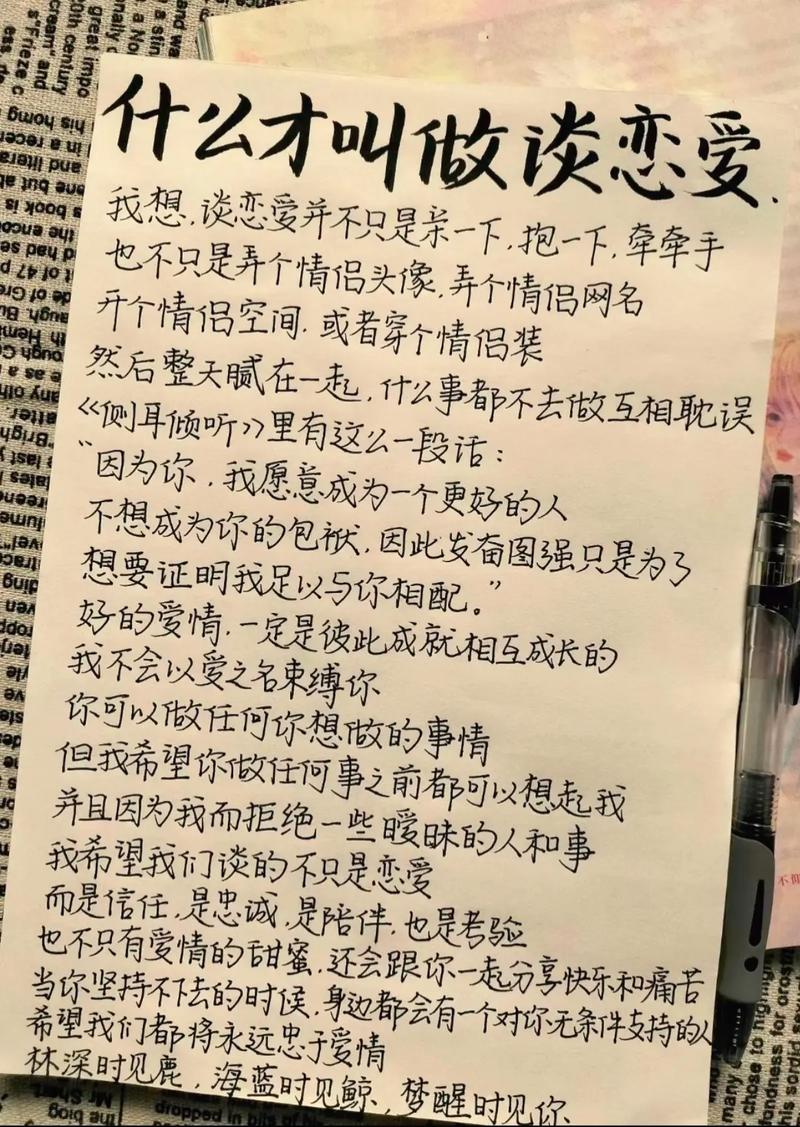 什么才叫做谈恋爱.
我想,谈恋爱并不只是亲一下,抱一下,牵牵手
也不只是弄个情侣头像,弄个情侣网名
开个情侣空间,或者穿个情侣装
然后整天腻在一起,什么事都不去做互相耽误
《侧耳倾听》里有这么一段话:
“因为你,我愿意成为一个更好的人
不想成为你的包袱,因此发奋图强只是为了
想要证明我足以与你相配。”
好的爱情,一定是彼此成就相互成长的
我不会以爱之名束缚你
你可以做任何你想做的事情
但我希望你做任何事之前都可以想起我
并且因为我而拒绝一些暧昧的人和事
我希望我们谈的不只是恋爱
而是信任,是忠诚,是陪伴,也是考验
也不只有爱情的甜蜜,还会跟你一起分享快乐和痛苦
当你坚持不下去的时候,身边都会有一个对你无条件支持的人
希望我们都将永远忠于爱情
林深时见鹿,海蓝时见鲸,梦醒时见你